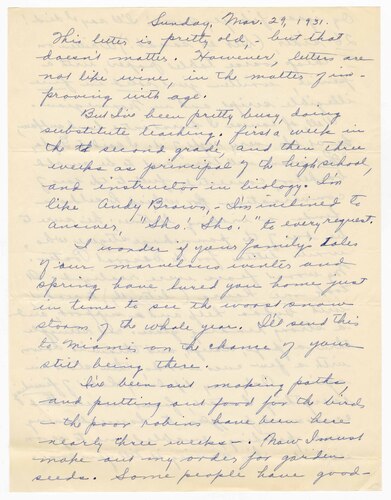 Sunday, Mar. 29, 1931.
This letter is pretty old, - but that
doesn't matter. However, letters are
not like wine, in the matter of im-
proving with age.
But I've been pretty busy, doing
substitute teaching. first a week in
the second grade, and then three
weeks as principal of the high school,
and instructor in biology. I'm
like Andy Brown, - I'm inclined to
answer, "Sho! Sho!" to every request.
I wonder if your family's tales
of our marvelous winter and
spring have lured you home just
in time to see the worst snow
storm of the whole year. I'll send this
to Miami on the chance of your
still being there.
I've been out making paths,
and putting out food for the birds
- the poor robins have been here
nearly three weeks -. Now I must
make out my order for garden
seeds. Some people have good-